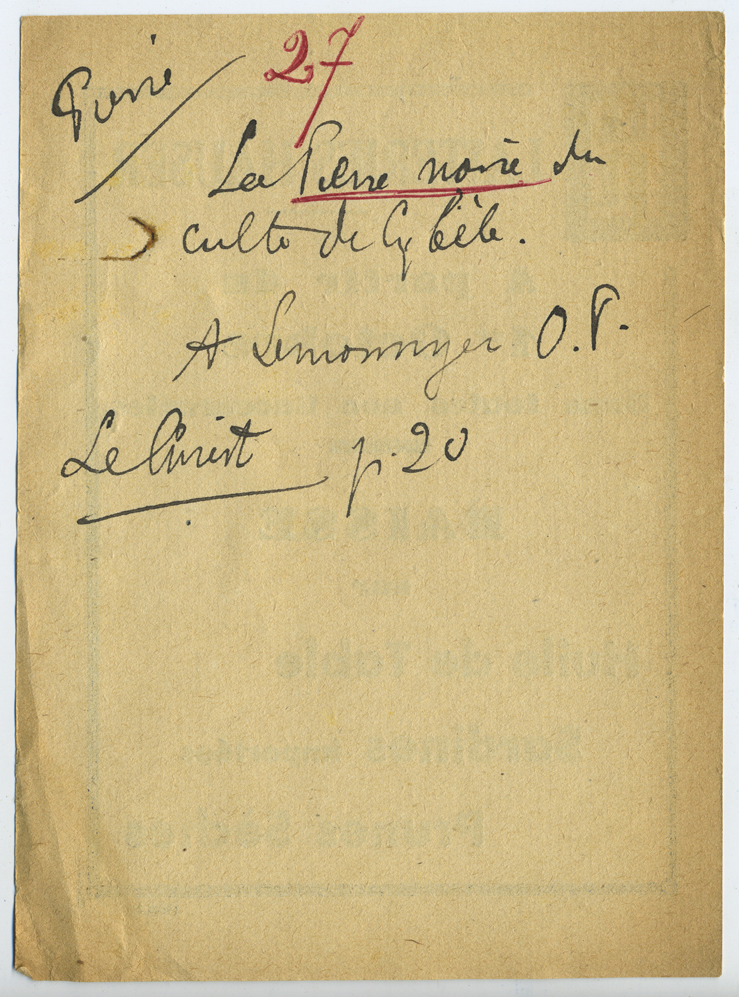 Pierre
27
La Pierre noire du
culte de Cybèle.
A Lemonnyer O.P.
Le Christ p. 20